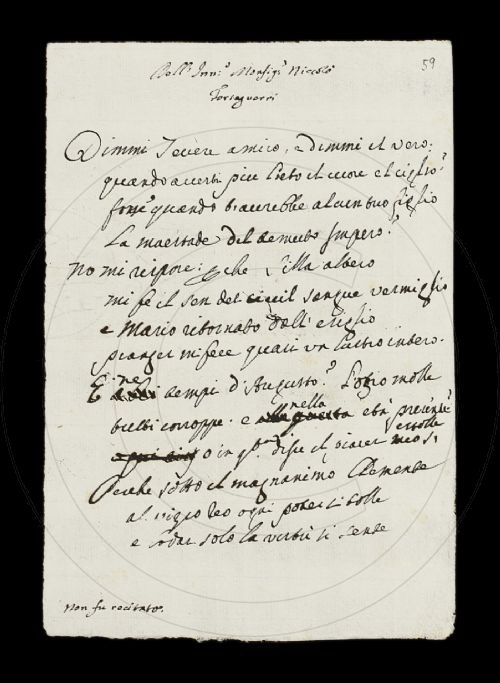 59
Dell' Ill.º Monsig.r Niccolò
Forteguerri
Dimmi Tevere amico, e dimmi il vero:
quando avesti piu lieto il cuore e 'l ciglio?
forse quando t'accrebbe alcun tuo figlio
La maestade del temuto Impero?
No mi rispose: che Silla altero
mi fè il sen del civil sangue vermiglio
e Mario ritornato dall' esiglio
pianger mi fece quasi un lustro intero.
E ne tempi d'Augusto? L'ozio molle
tutti corroppe. e nella età presente
o in q.ta disse il piacer s'estolle
Perche sotto il magnanimo Clemente
al vizio reo ogni poter si tolle
e lodar solo la virtù si sente
non fu recitato.